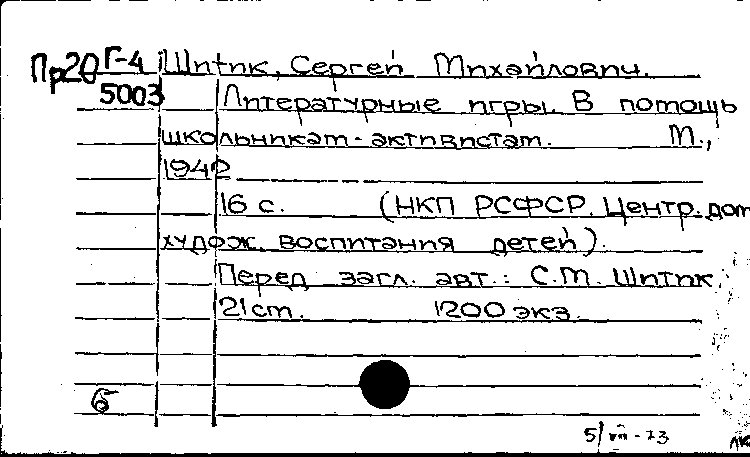 Пр20 Г-4 Шитик, Сергей Михайлович.
5003 Литературные игры. В помощь
школьникам-активистам. М.,
1942
16 с. (НКП РСФСР. Центр. дом
худож. воспитания детей).
Перед загл. авт.: С.М. Шитик.
21 cm. 1200 экз.
б
5/VII-73